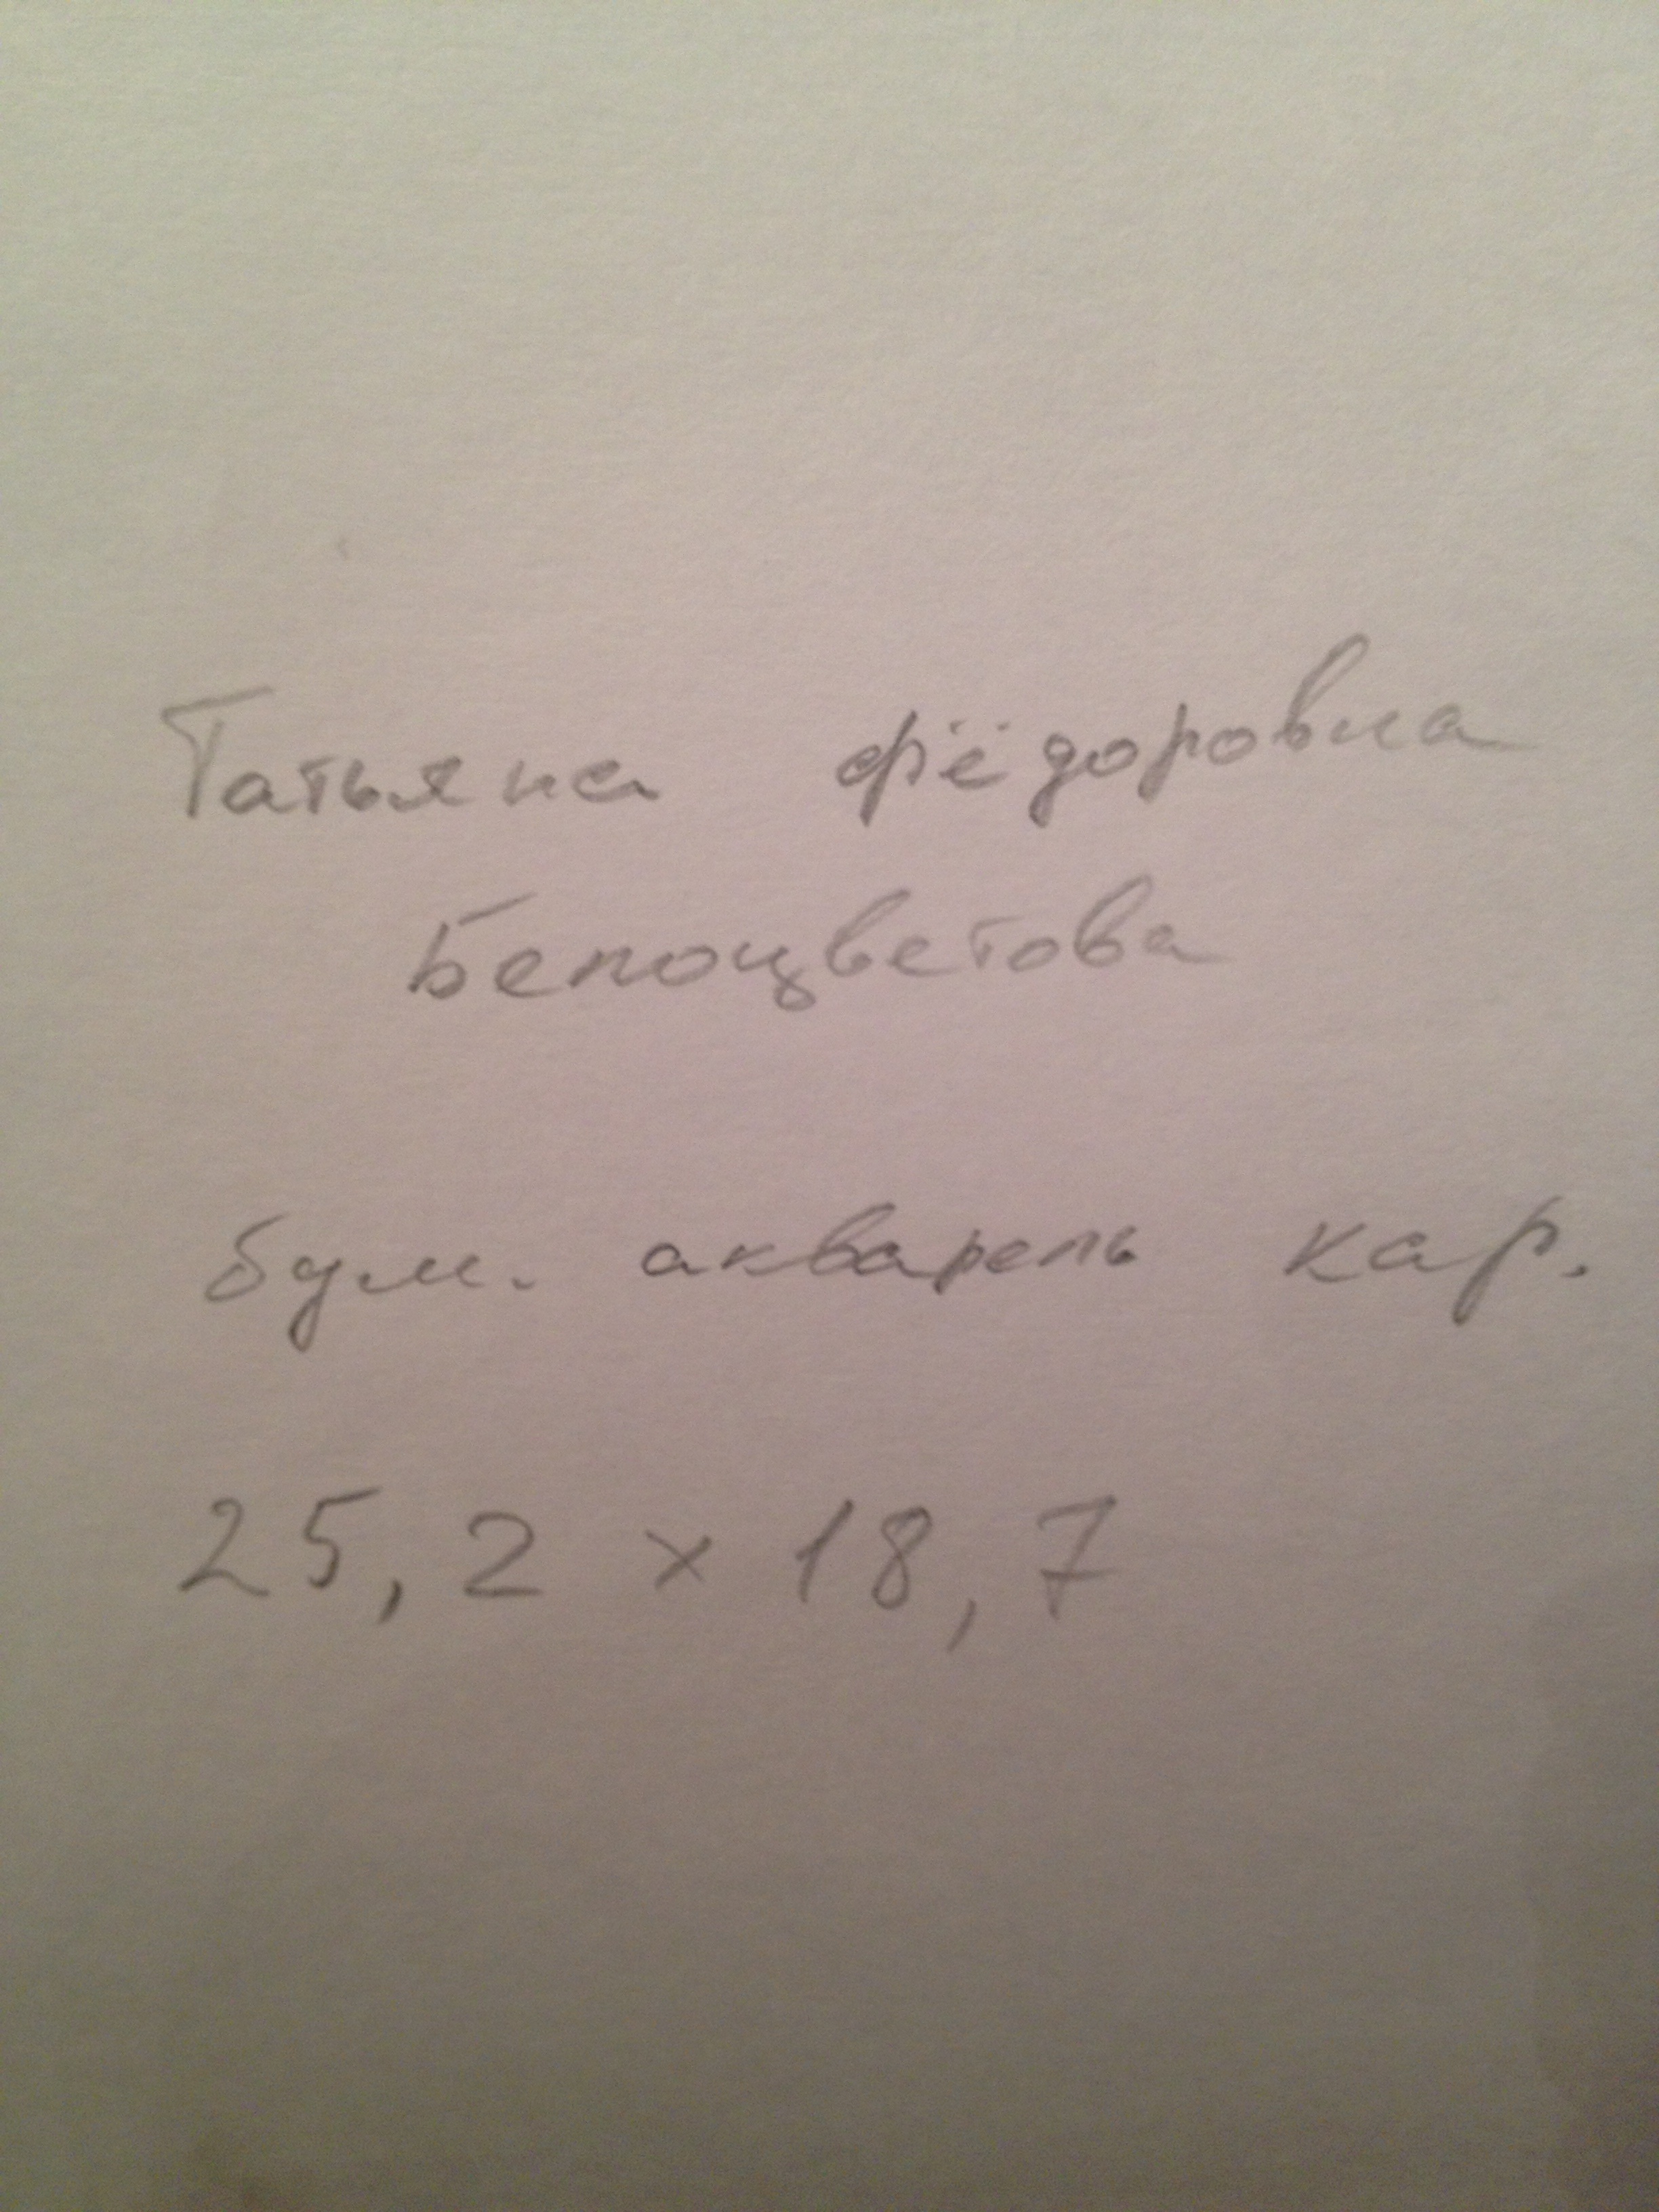 Татьяна Фёдоровна
Белоцветова
бум. акварель кар.
25,2 × 18,7